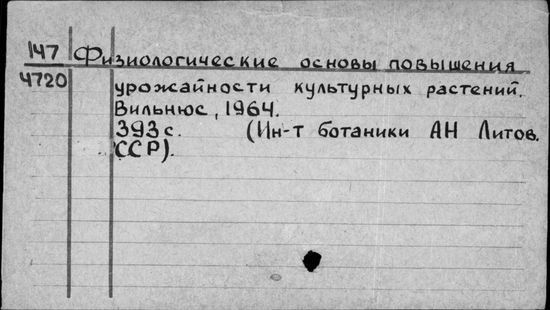 147 Физиологические основы повышения
4720 урожайности культурных растений.
Вильнюс, 1964.
393 с. (Ин-т ботаники АН Литов.
ССР).